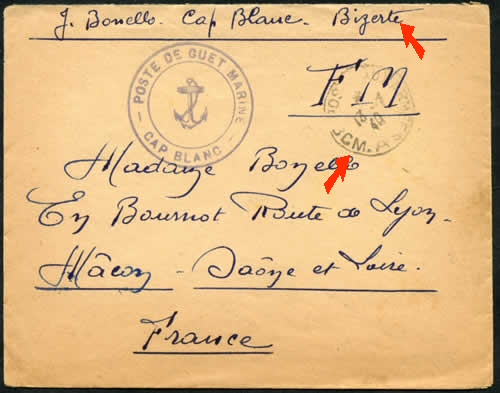 J. Bonello. Cap Blanc. Bizerte
POSTE DE GUET MARINE
CAP BLANC
FM
Madame Bonello
En Bournot Route de Lyon.
Mâcon - Saône et Loire.
France